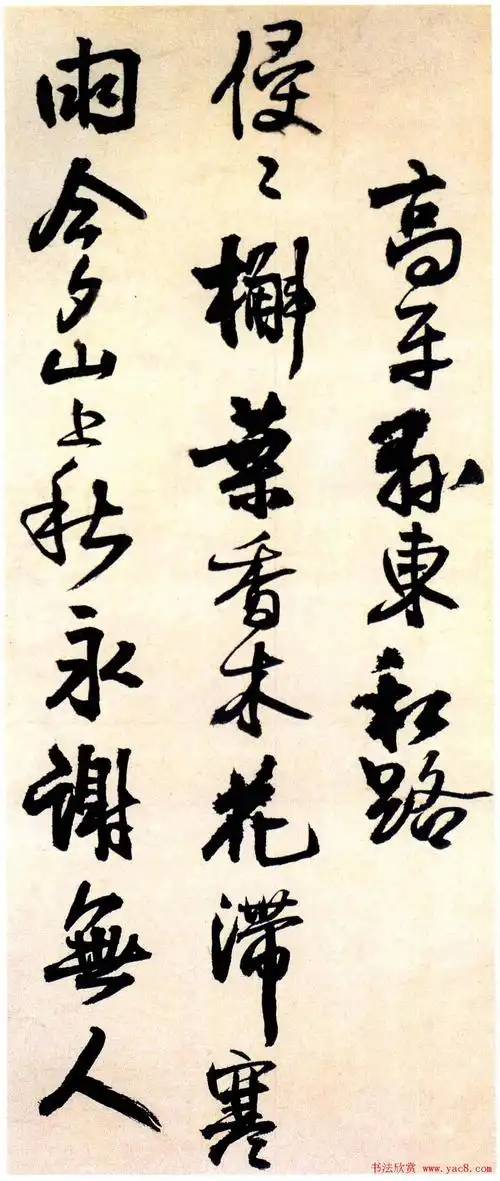 高平縣東私路
侵〻槲葉香木花滯寒
雨今夕山上秋永謝無人
书法欣赏 www.yac8.com